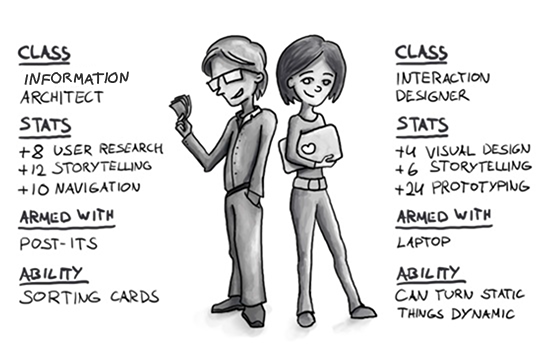 CLASS
INFORMATION
ARCHITECT
STATS
+8 USER RESEARCH
+12 STORYTELLING
+10 NAVIGATION
ARMED WITH
POST-ITS
ABILITY
SORTING CARDS
CLASS
INTERACTION
DESIGNER
STATS
+4 VISUAL DESIGN
+6 STORYTELLING
+24 PROTOTYPING
ARMED WITH
LAPTOP
ABILITY
CAN TURN STATIC
THINGS DYNAMIC